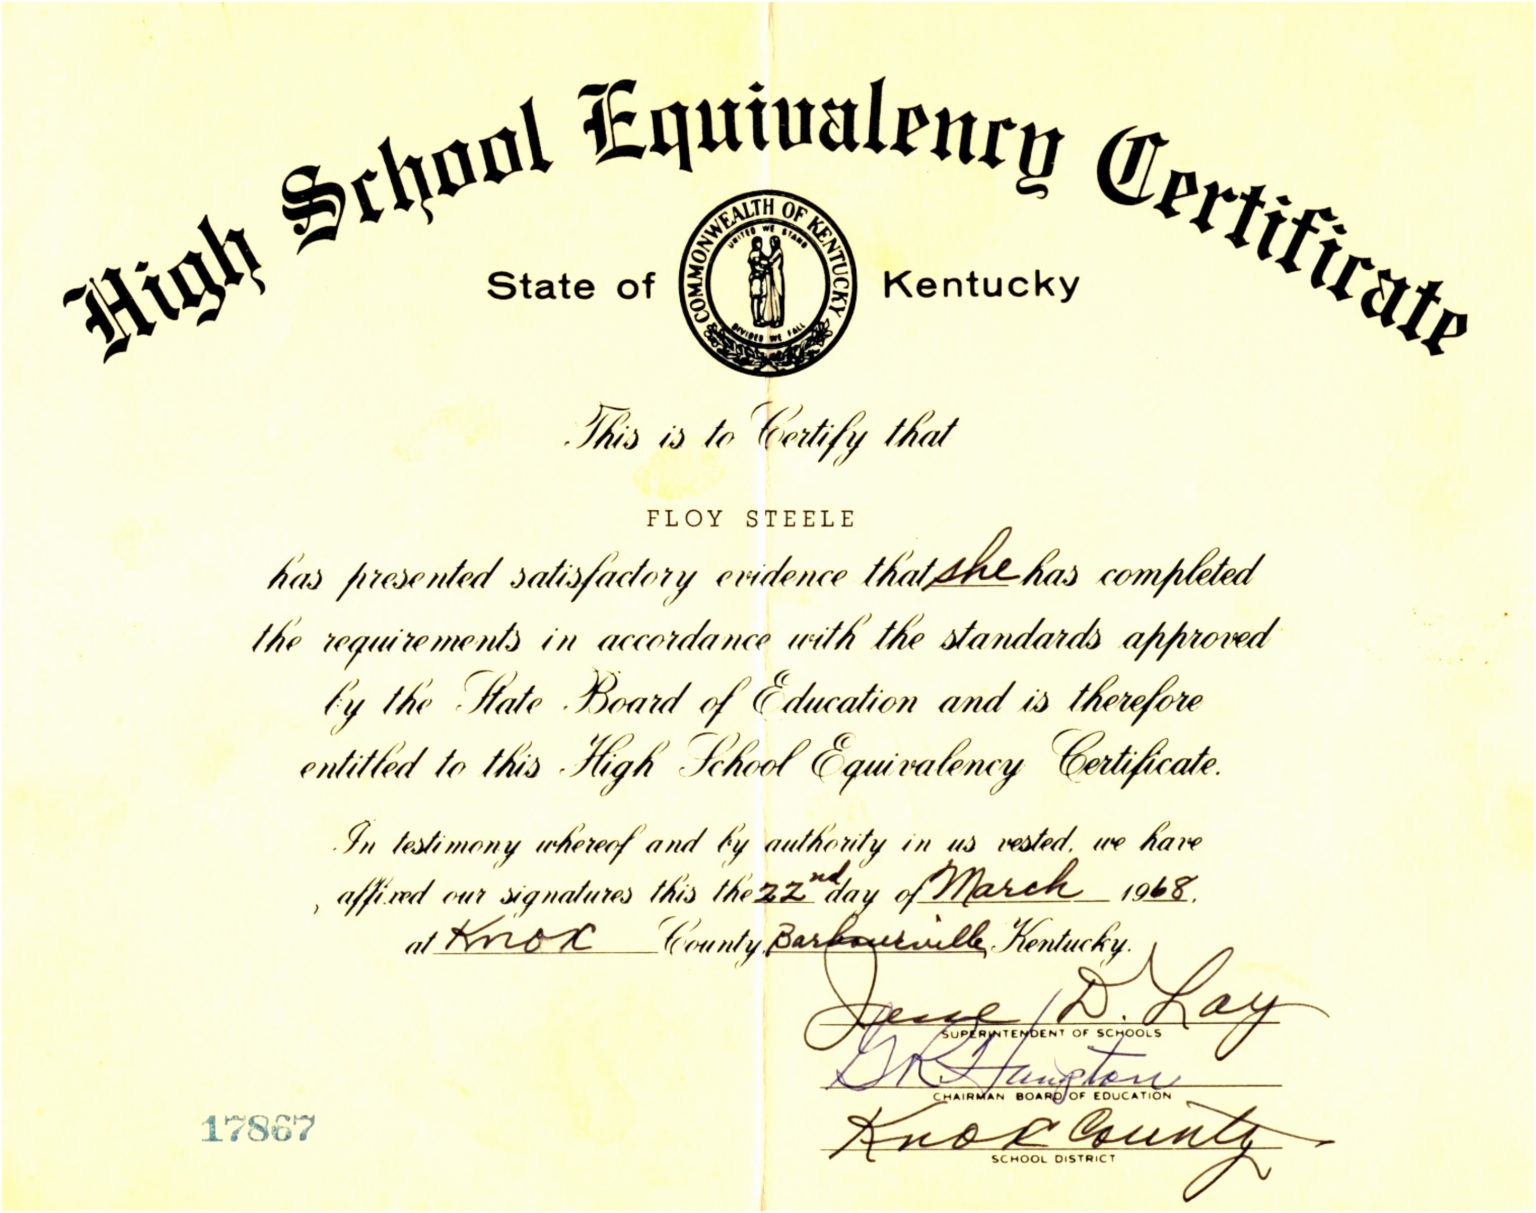 High School Equivalency Certificate
COMMONWEALTH OF KENTUCKY
UNITED WE STAND
State of Kentucky
DIVIDED WE FALL
This is to Certify that
FLOY STEELE
has presented satisfactory evidence that she has completed
the requirements in accordance with the standards approved
by the State Board of Education and is therefore
entitled to this High School Equivalency Certificate.
In testimony whereof and by authority in us vested, we have
affixed our signatures this the 22nd day of March 1968,
at Knox County, Barbourville, Kentucky.
Jesse D. Lay
SUPERINTENDENT OF SCHOOLS
CHAIRMAN BOARD OF EDUCATION
Knox County
SCHOOL DISTRICT
17867